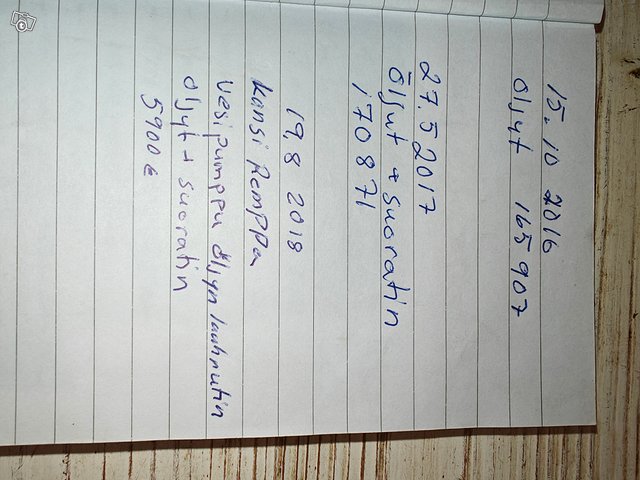 15.10 2016
öljyt 165 907
27.5 2017
Öljyt + suoratin
170 871
19.8 2018
Kansi Remppa
Vesipumppu öljyn lauhnutin
öljyt + suoratin
5900 €